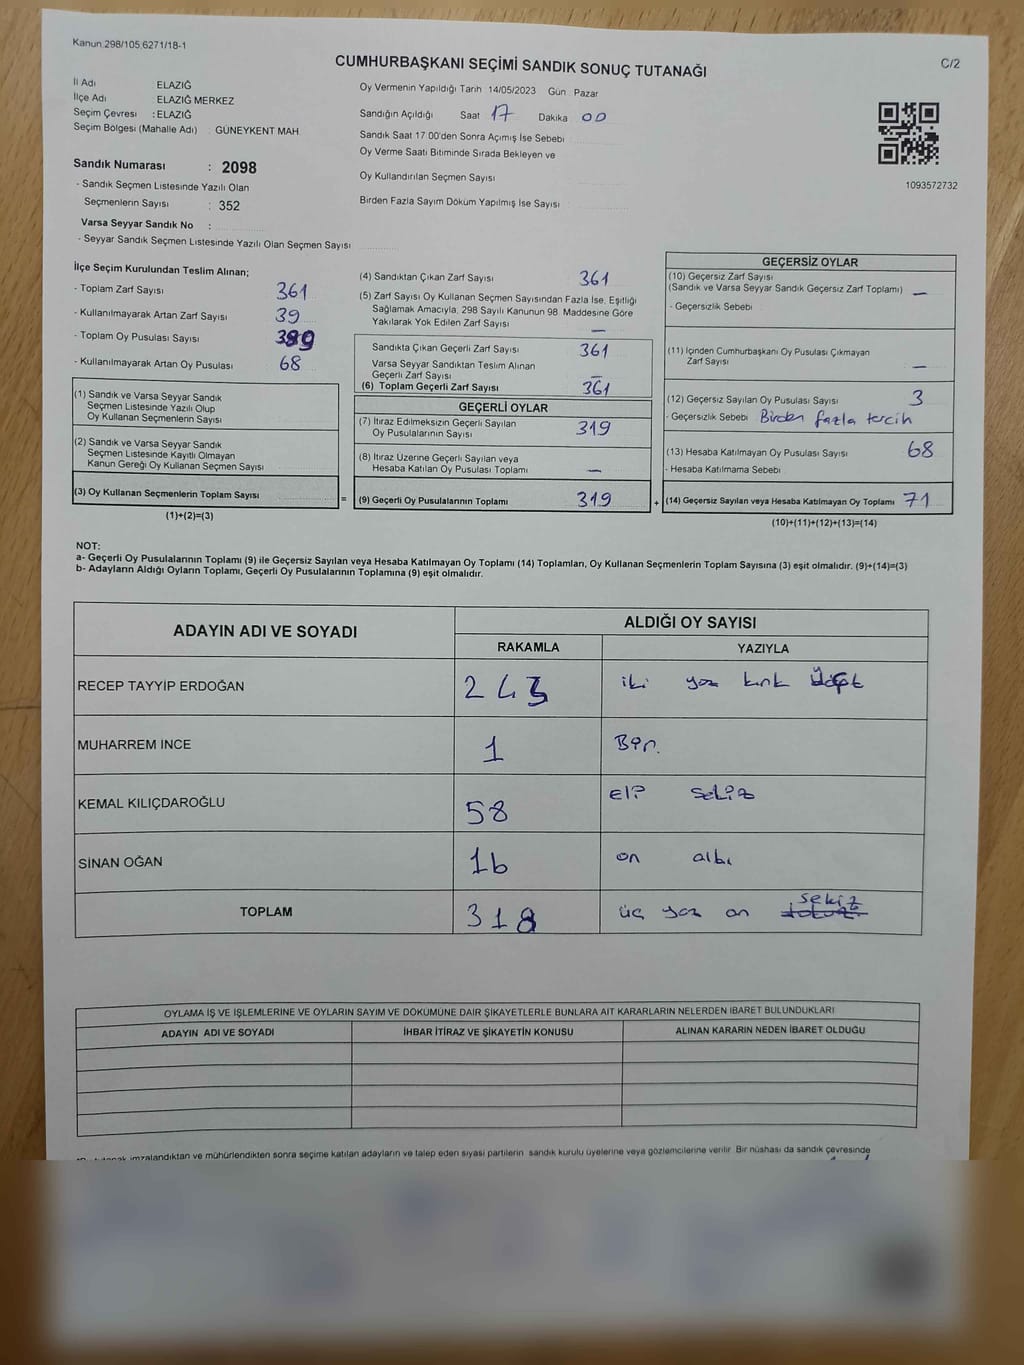 Kanun:298/105,6271/18-1
C/2
CUMHURBAŞKANI SEÇİMİ SANDIK SONUÇ TUTANAĞI
İl Adı : ELAZIĞ
İlçe Adı : ELAZIĞ MERKEZ
Seçim Çevresi : ELAZIĞ
Seçim Bölgesi (Mahalle Adı) : GÜNEYKENT MAH.
Oy Vermenin Yapıldığı Tarih 14/05/2023 Gün : Pazar
Sandığın Açıldığı Saat 17 Dakika 00
Sandık Saat 17:00'den Sonra Açımış İse Sebebi
Oy Verme Saati Bitiminde Sırada Bekleyen ve
Oy Kullandırılan Seçmen Sayısı
Birden Fazla Sayım Döküm Yapılmış İse Sayısı
1093572732
Sandık Numarası : 2098
- Sandık Seçmen Listesinde Yazılı Olan
Seçmenlerin Sayısı : 352
Varsa Seyyar Sandık No :
- Seyyar Sandık Seçmen Listesinde Yazılı Olan Seçmen Sayısı
İlçe Seçim Kurulundan Teslim Alınan;
- Toplam Zarf Sayısı 361
- Kullanılmayarak Artan Zarf Sayısı 39
- Toplam Oy Pusulası Sayısı
- Kullanılmayarak Artan Oy Pusulası 68
(1) Sandık ve Varsa Seyyar Sandık
Seçmen Listesinde Yazılı Olup
Oy Kullanan Seçmenlerin Sayısı
(2) Sandık ve Varsa Seyyar Sandık
Seçmen Listesinde Kayıtlı Olmayan
Kanun Gereği Oy Kullanan Seçmen Sayısı
(3) Oy Kullanan Seçmenlerin Toplam Sayısı =
(1)+(2)=(3)
(4) Sandıktan Çıkan Zarf Sayısı 361
(5) Zarf Sayısı Oy Kullanan Seçmen Sayısından Fazla İse, Eşitliği
Sağlamak Amacıyla, 298 Sayılı Kanunun 98. Maddesine Göre
Yakılarak Yok Edilen Zarf Sayısı —
Sandıkta Çıkan Geçerli Zarf Sayısı 361
Varsa Seyyar Sandıktan Teslim Alınan
Geçerli Zarf Sayısı —
(6) Toplam Geçerli Zarf Sayısı 361
GEÇERLİ OYLAR
(7) İtiraz Edilmeksizin Geçerli Sayılan
Oy Pusulalarının Sayısı 319
(8) İtiraz Üzerine Geçerli Sayılan veya
Hesaba Katılan Oy Pusulası Toplamı —
(9) Geçerli Oy Pusulalarının Toplamı 319 +
GEÇERSİZ OYLAR
(10) Geçersiz Zarf Sayısı
(Sandık ve Varsa Seyyar Sandık Geçersiz Zarf Toplamı) —
- Geçersizlik Sebebi
(11) İçinden Cumhurbaşkanı Oy Pusulası Çıkmayan
Zarf Sayısı —
(12) Geçersiz Sayılan Oy Pusulası Sayısı 3
- Geçersizlik Sebebi Birden fazla tercih
(13) Hesaba Katılmayan Oy Pusulası Sayısı 68
- Hesaba Katılmama Sebebi
(14) Geçersiz Sayılan veya Hesaba Katılmayan Oy Toplamı 71
(10)+(11)+(12)+(13)=(14)
NOT:
a- Geçerli Oy Pusulalarının Toplamı (9) ile Geçersiz Sayılan veya Hesaba Katılmayan Oy Toplamı (14) Toplamları, Oy Kullanan Seçmenlerin Toplam Sayısına (3) eşit olmalıdır. (9)+(14)=(3)
b- Adayların Aldığı Oyların Toplamı, Geçerli Oy Pusulalarının Toplamına (9) eşit olmalıdır.
ADAYIN ADI VE SOYADI
ALDIĞI OY SAYISI
RAKAMLA YAZIYLA
RECEP TAYYİP ERDOĞAN 243 iki yüz kırk
MUHARREM İNCE 1 Bir.
KEMAL KILIÇDAROĞLU 58 Elli sekiz
SİNAN OĞAN 16 on altı
TOPLAM 318 üç yüz on sekiz
OYLAMA İŞ VE İŞLEMLERİNE VE OYLARIN SAYIM VE DÖKÜMÜNE DAİR ŞİKAYETLERLE BUNLARA AİT KARARLARIN NELERDEN İBARET BULUNDUKLARI
ADAYIN ADI VE SOYADI İHBAR İTİRAZ VE ŞİKAYETİN KONUSU ALINAN KARARIN NEDEN İBARET OLDUĞU
imzalandıktan ve mühürlendikten sonra seçime katılan adayların ve talep eden siyasi partilerin sandık kurulu üyelerine veya gözlemcilerine verilir. Bir nüshası da sandık çevresinde